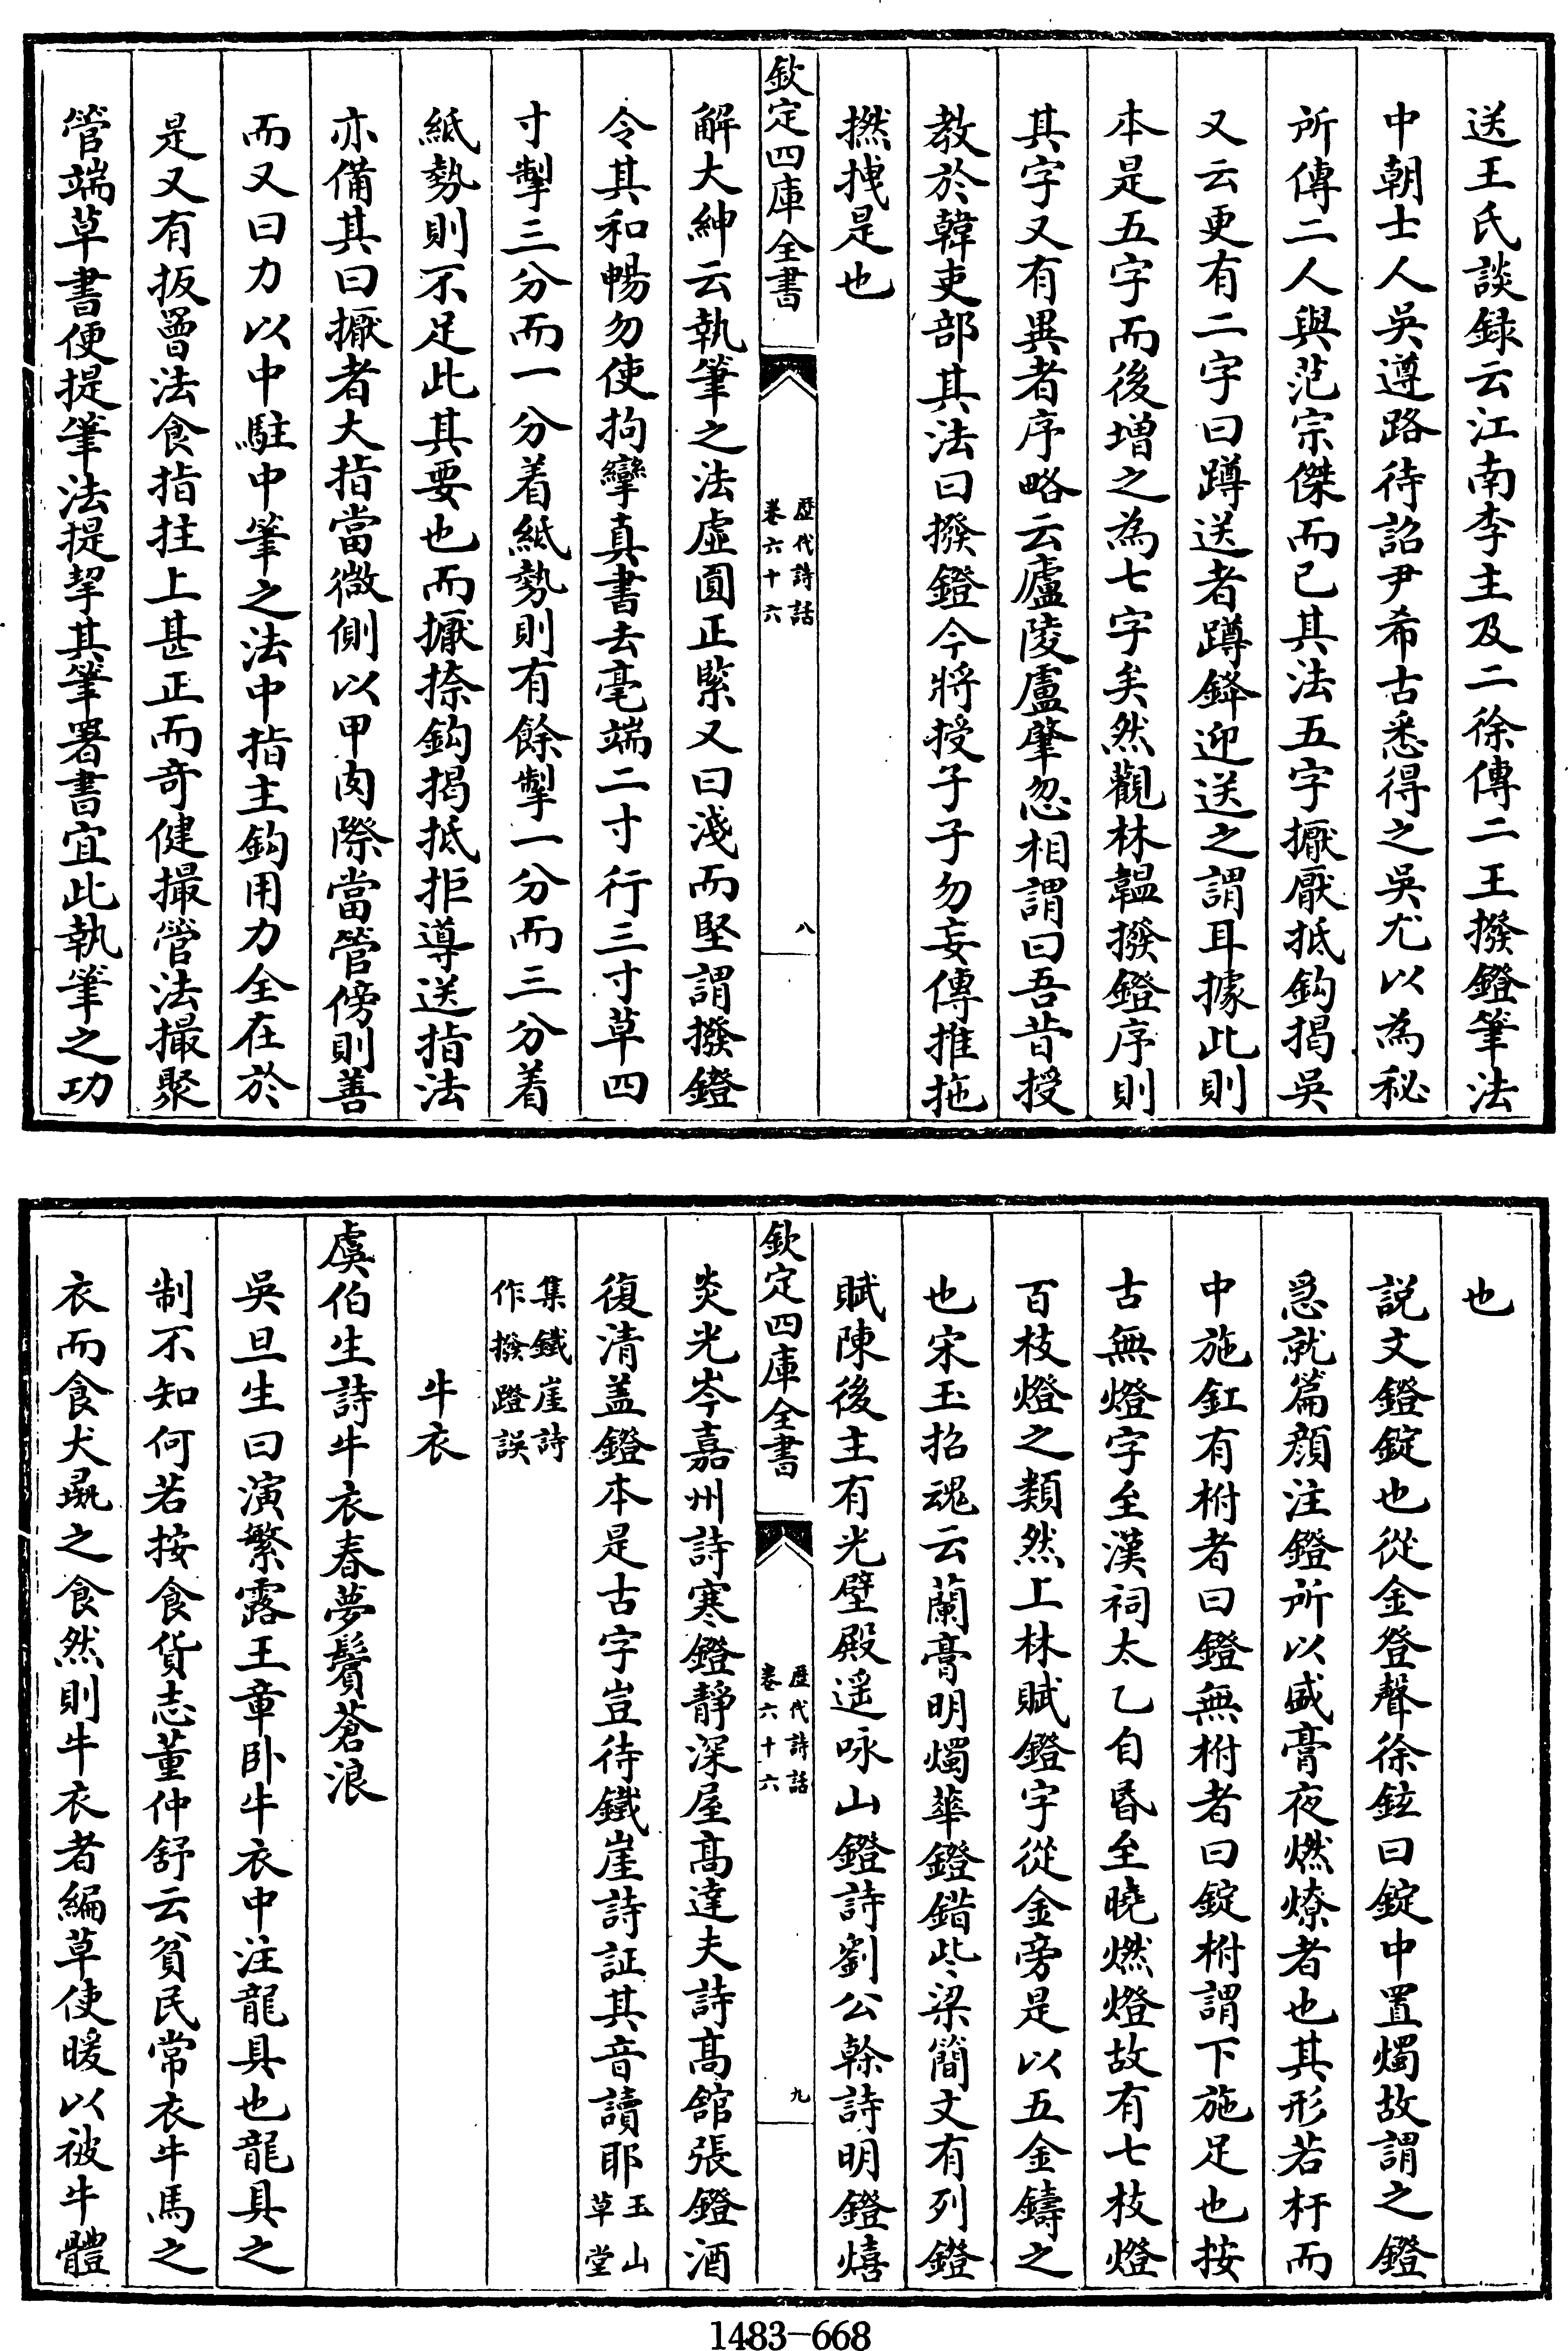 送王氏談録云江南李主及二徐傳二王撥鐙筆法
中朝士人吳遵路待詔尹希古悉得之吳尤以為秘
所傳二人與范宗傑而已其法五字擫厭抵鈎揭吳
又云更有二字曰蹲送者蹲鋒迎送之謂耳據此則
本是五字而後增之為七字矣然觀林韞撥鐙序則
其字又有異者序略云廬陵盧肇忽相謂曰吾昔授
教於韓吏部其法曰撥鐙今將授子子勿妄傳推拖
撚拽是也
欽定四庫全書
歴代詩話
卷六十六
八
解大紳云執筆之法虛圓正緊又曰淺而堅謂撥鐙
令其和暢勿使拘攣真書去毫端二寸行三寸草四
寸掣三分而一分着紙勢則有餘掣一分而三分着
紙勢則不足此其要也而擫捺鈎揭抵拒導送指法
亦備其曰擫者大指當微側以甲肉際當管傍則善
而又曰力以中駐中筆之法中指主鈎用力全在於
是又有扳罾法食指拄上甚正而奇健撮管法撮聚
管端草書便提筆法提挈其筆署書宜此執筆之功
也
説文鐙錠也從金登聲徐鉉曰錠中置燭故謂之鐙
急就篇顔注鐙所以盛膏夜燃燎者也其形若杅而
中施釭有柎者曰鐙無柎者曰錠柎謂下施足也按
古無燈字至漢祠太乙自昏至曉燃燈故有七枝燈
百枝燈之類然上林賦鐙字從金旁是以五金鑄之
也宋玉招魂云蘭膏明燭華鐙錯些梁簡文有列鐙
賦陳後主有光壁殿遥咏山鐙詩劉公幹詩明鐙熺
欽定四庫全書
歴代詩話
卷六十六
九
炎光岑嘉州詩寒鐙靜深屋高達夫詩高舘張鐙酒
復清盖鐙本是古字豈待鐵崖詩証其音讀耶玉山草堂
集鐵崖詩作撥蹬誤
牛衣
虞伯生詩牛衣春夢鬢蒼浪
吳旦生曰演繁露王章卧牛衣中注龍具也龍具之
制不知何若按食貨志董仲舒云貧民常衣牛馬之
衣而食犬彘之食然則牛衣者編草使暖以被牛體
1483-668